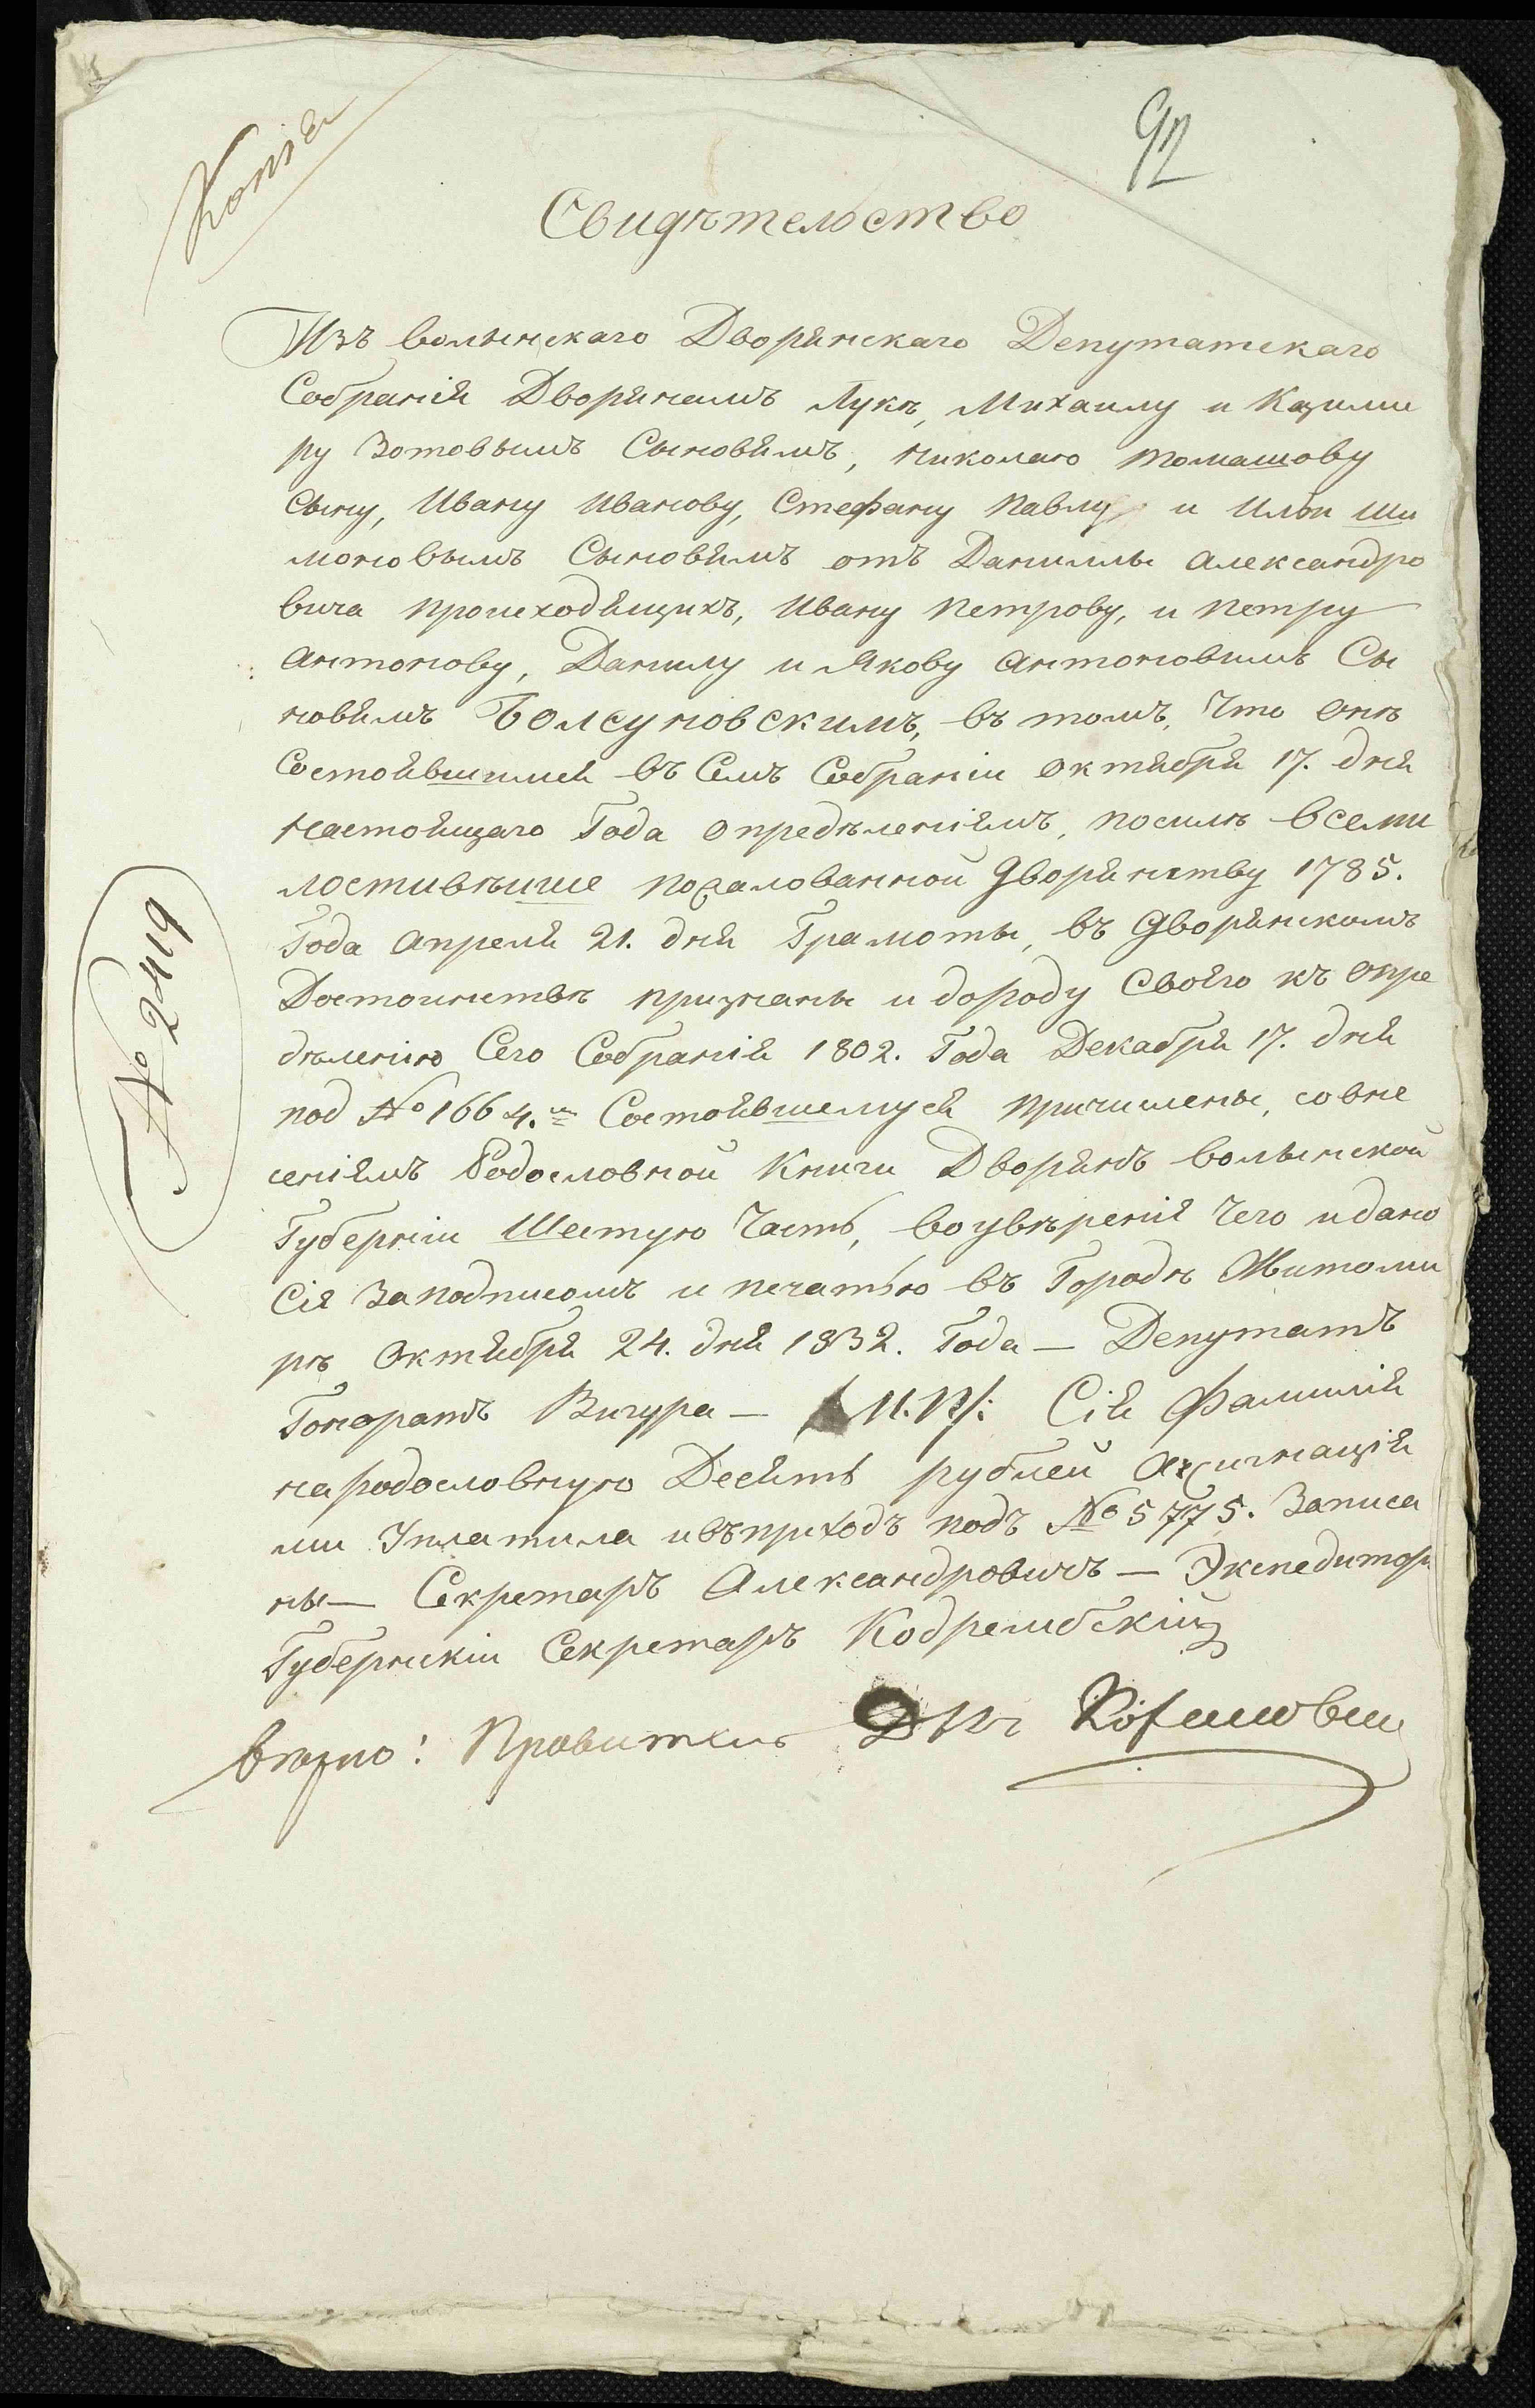 Копія
92
Свидѣтельство
Изъ Волынскаго Дворянскаго Депутатскаго
Собранія Дворянамъ Лукѣ, Михаилу и Казими
ру Зотовымъ Сыновямъ, Николаю Томашову
Сыну, Ивану Иванову, Стефану Павлу и Ильи Ши
моновымъ Сыновямъ отъ Даниилы Александро
вича происходящихъ, Ивану Петрову, и Петру
Антонову, Данилу и Якову Антоновымъ Сы
новямъ Болсуновскимъ, въ томъ, Что Онѣ
Состоявшимся въ Семъ Собраніи Октября 17. дня
Настоящаго Года Опредѣленіямъ, посилѣ Всеми
лостивѣише пожалованной Дворянству 1785.
Года Апреля 21. дня Грамоты, въ Дворянскомъ
Достоинствѣ признаны идороду Своего къ Опре
дѣленію Сего Собранія 1802. Года Декабря 17. дня
под № 1664.м Состоявшемуся причислены, совне
сеніямъ Родословной Книги Дворянъ Волынской
Губерніи Шестую Часть, воувѣреніе Чего идано
Сіе Заподписомъ и печатью въ Городѣ Житоми
рѣ Октября 24. дня 1832. Года — Депутатъ
Гоноратъ Вигура — /М.П/: Сія Фамилія
народословную Десять рублей Ассигнація
ми Уплатила ивъприходъ подъ № 5775. Записа
ны — Секретаръ Александровичъ — Экспедиторъ
Губернскіи Секретаръ Кодрембскій
Вѣрно: Правитель Дѣлъ
№ 2419